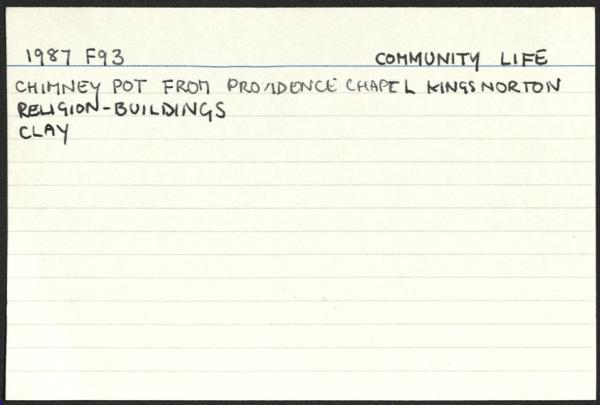 1987 F93 COMMUNITY LIFE
CHIMNEY POT FROM PROVIDENCE CHAPEL KINGSNORTON
RELIGION-BUILDINGS
CLAY